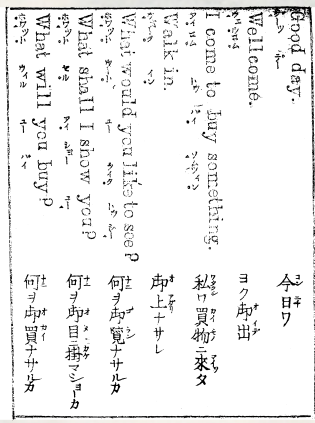 Good day.
デー
今日ワ
Wellcome.
ヨク御出
I come to buy something.
私ワ買物ニ來タ
Walk in.
イン
御上ナサレ
What would you like to see?
何ヲ御覽ナサルカ
What shall I show you?
ホワット セル アイ ショー ユー
何ヲ御目ニ掛マショーカ
What will you buy?
ホワット ウィル ユー バイ
何ヲ御買ナサルカ